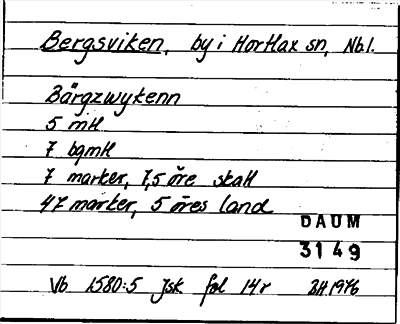 Bergsviken, by i Hortlax sn, Nbl.
Bärgzwykenn
5 mtl
7 bgmtl
7 marker, 7,5 öre skatt
47 marker, 5 öres land
DAUM
3149
Vb 1580:5 Jsk fol 14r BH 1976